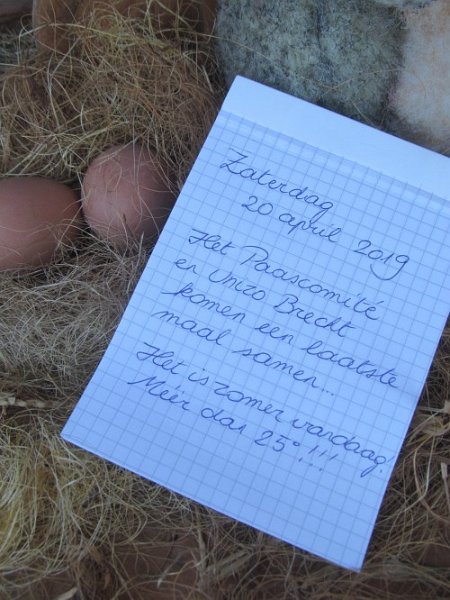 Zaterdag
20 april 2019
Het Paascomité
en Unizo Brecht
komen een laatste
maal samen...
Het is zomer vandaag.
Méér dan 25°!!!